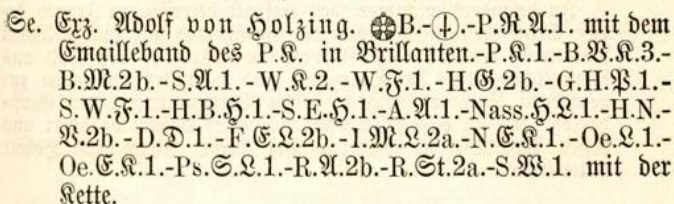 Se. Exz. Adolf von Holzing. B.-P.R.A.1. mit dem
Emailleband des P.K. in Brillanten.-P.K.1.-B.V.K.3.-
B.M.2b.-S.A.1.-W.K.2.-W.F.1.-H.G.2b.-G.H.P.1.-
S.W.F.1.-H.B.H.1.-S.E.H.1.-A.A.1.-Nass.H.L.1.-H.N.-
V.2b.-D.D.1.-F.E.L.2b.-I.M.L.2a.-N.E.K.1.-Oe.L.1.-
Oe.E.K.1.-Ps.S.L.1.-R.A.2b.-R.St.2a.-S.W.1. mit der
Kette.